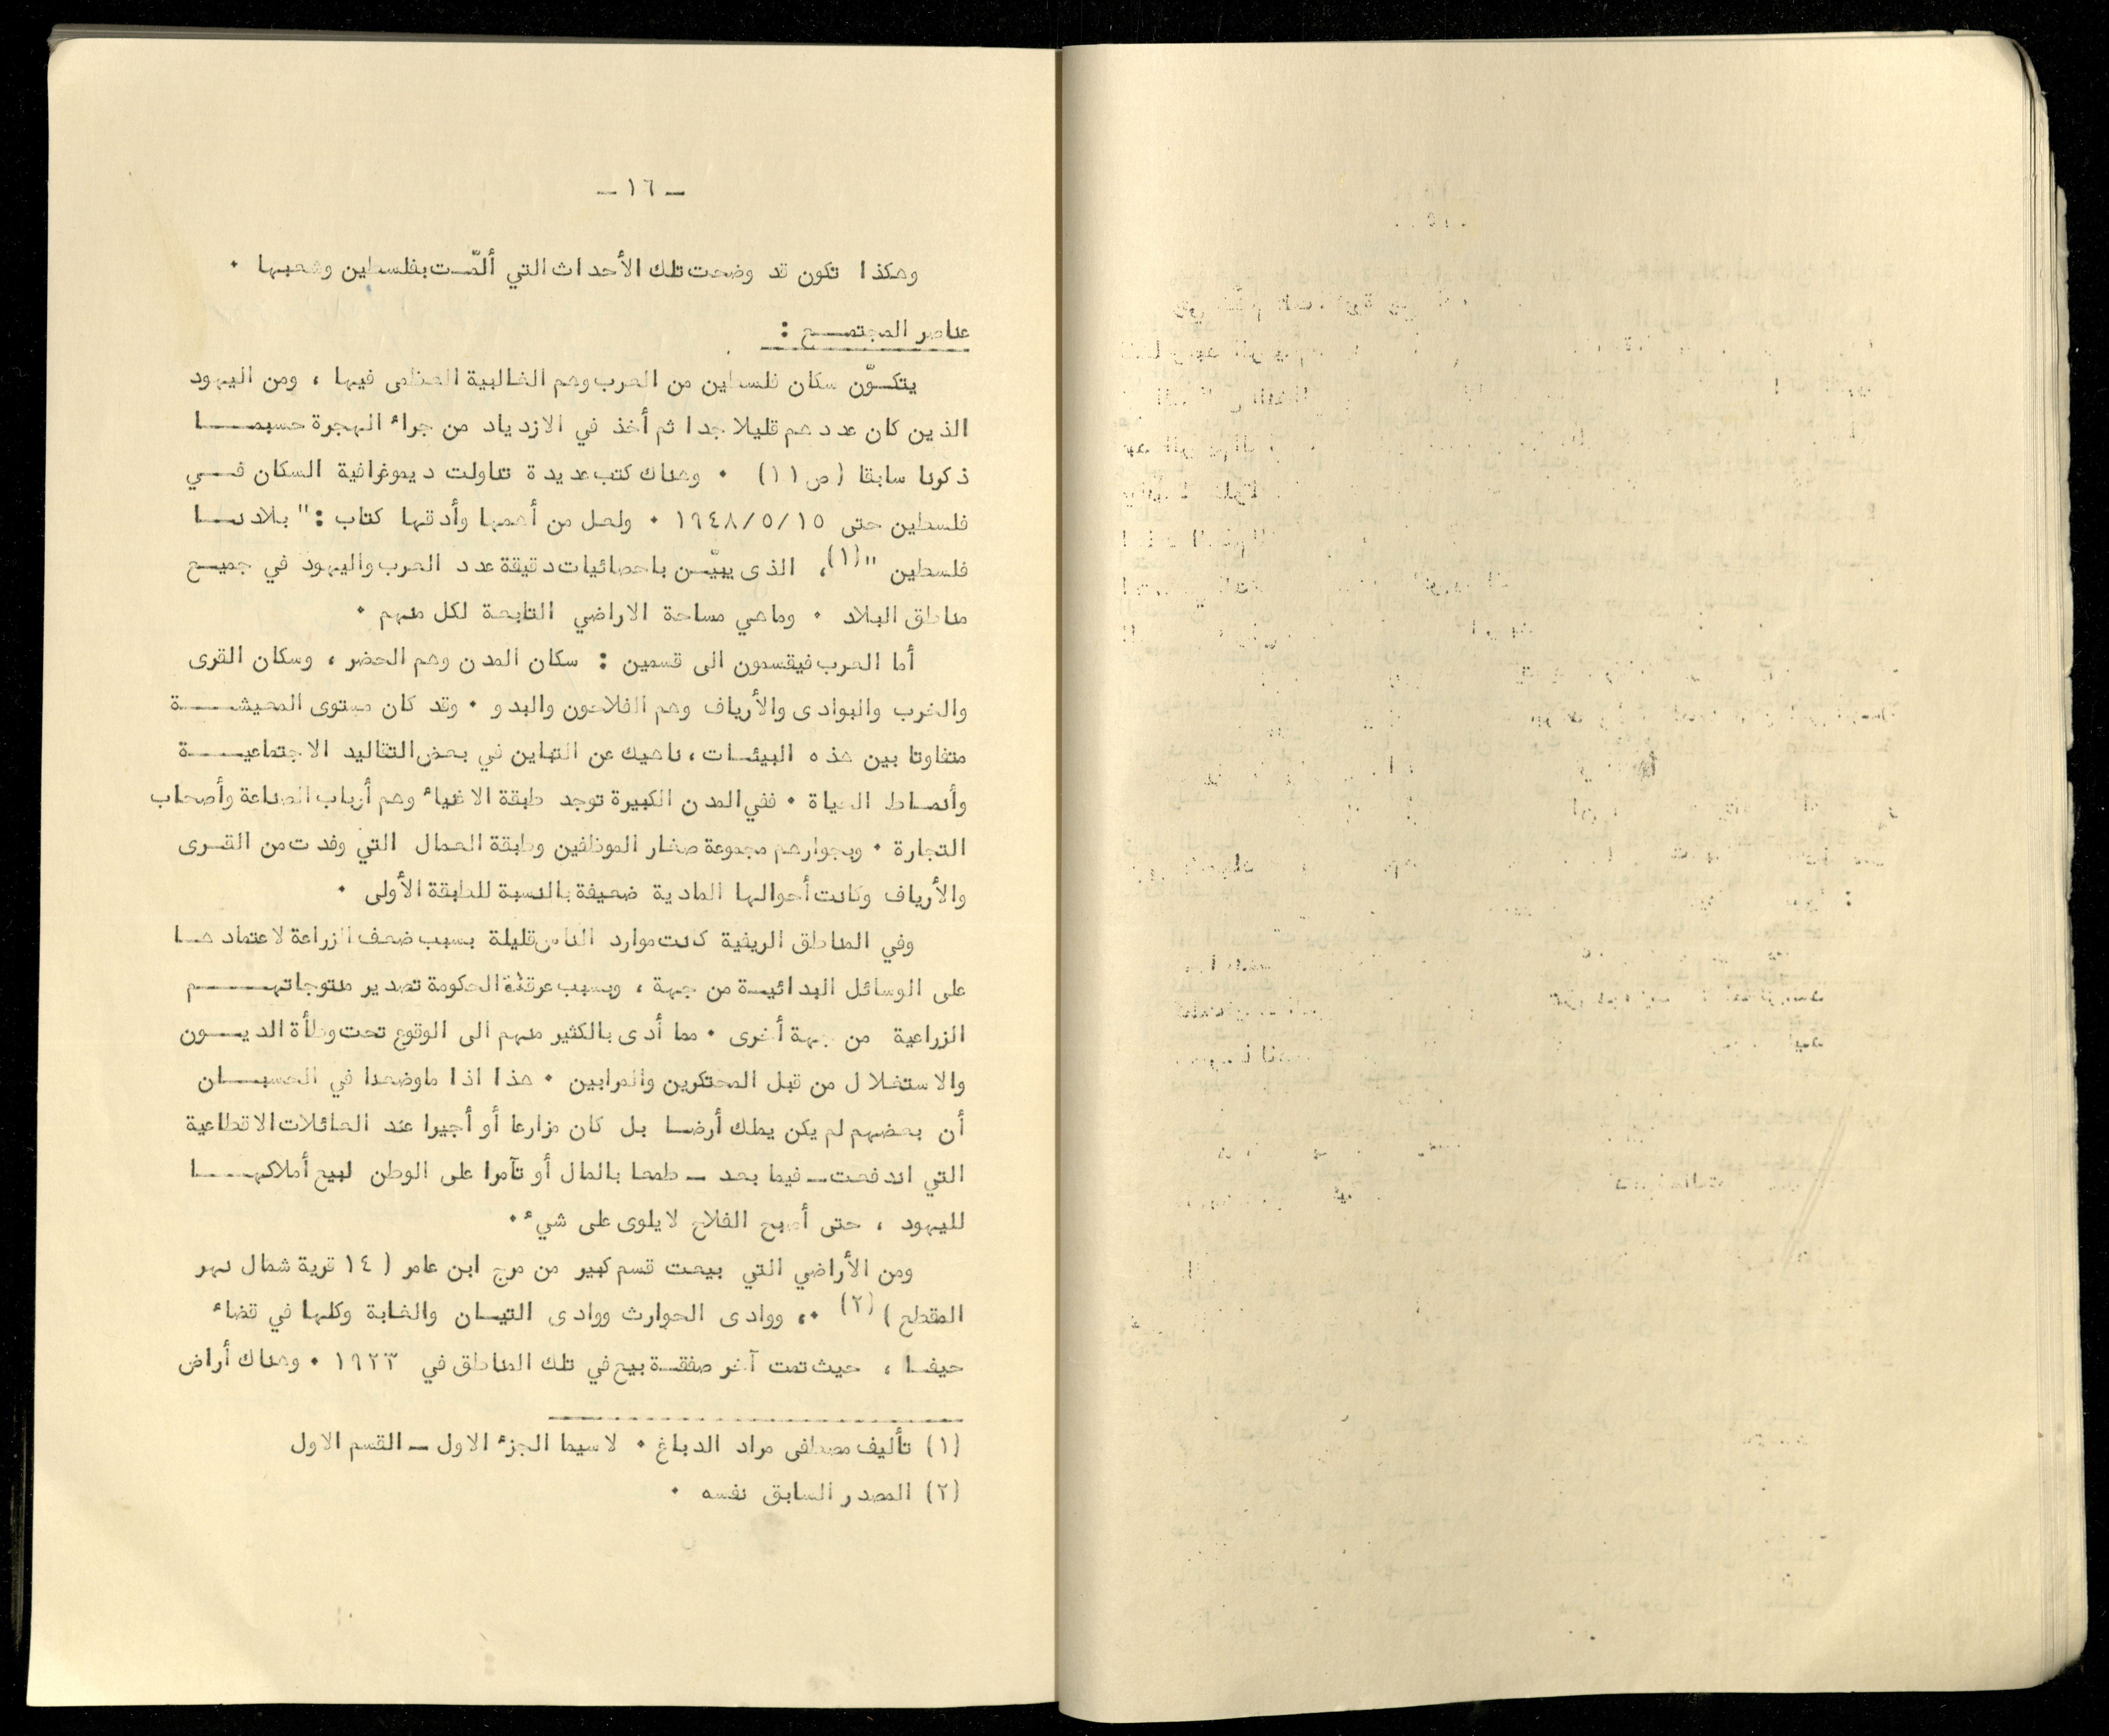 — ١٦ —
وهكذا تكون قد وضحت تلك الأحداث التي ألمّت بفلسطين وشعبها ٠
عناصر المجتمع :
يتكوّن سكان فلسطين من العرب وهم الغالبية العظمى فيها ، ومن اليهود
الذين كان عددهم قليلا جدا ثم أخذ في الازدياد من جراء الهجرة حسبما
ذكرنا سابقا (ص ١١) ٠ وهناك كتب عديدة تناولت ديموغرافية السكان في
فلسطين حتى ١٩٤٨/٥/١٥ ٠ ولعل من أهمها وأدقها كتاب : " بلادنا
فلسطين "(١)، الذى يبيّن باحصائيات دقيقة عدد العرب واليهود في جميع
مناطق البلاد ٠ وماهي مساحة الاراضي التابعة لكل منهم ٠
أما العرب فيقسمون الى قسمين : سكان المدن وهم الحضر ، وسكان القرى
والخرب والبوادى والأرياف وهم الفلاحون والبدو ٠ وقد كان مستوى المعيشة
متفاوتا بين هذه البيئات ، ناهيك عن التباين في بعض التقاليد الاجتماعية
وأنماط الحياة ٠ ففي المدن الكبيرة توجد طبقة الاغنياء وهم أرباب الصناعة وأصحاب
التجارة ٠ وبجوارهم مجموعة صغار الموظفين وطبقة العمال التي وفدت من القرى
والأرياف وكانت أحوالها المادية ضعيفة بالنسبة للطبقة الأولى ٠
وفي المناطق الريفية كانت موارد الناس قليلة بسبب ضعف الزراعة لاعتمادها
على الوسائل البدائية من جهة ، وبسبب عرقلة الحكومة تصدير منتوجاتهم
الزراعية من جهة أخرى ٠ مما أدى بالكثير منهم الى الوقوع تحت وطأة الديون
والاستغلال من قبل المحتكرين والمرابين ٠ هذا اذا ماوضعنا في الحسبان
أن بعضهم لم يكن يملك أرضا بل كان مزارعا أو أجيرا عند العائلات الاقطاعية
التي اندفعت — فيما بعد — طمعا بالمال أو تآمرا على الوطن لبيع أملاكها
لليهود ، حتى أصبح الفلاح لايلوى على شيء ٠
ومن الأراضي التي بيعت قسم كبير من مرج ابن عامر ( ١٤ قرية شمال نهر
المقطع ) (٢) ٠، ووادى الحوارث ووادى التيان والغابة وكلها في قضاء
حيفا ، حيث تمت آخر صفقة بيع في تلك المناطق في ١٩٢٣ ٠ وهناك أراض
(١) تأليف مصطفى مراد الدباغ ٠ لاسيما الجزء الاول — القسم الاول
(٢) المصدر السابق نفسه ٠